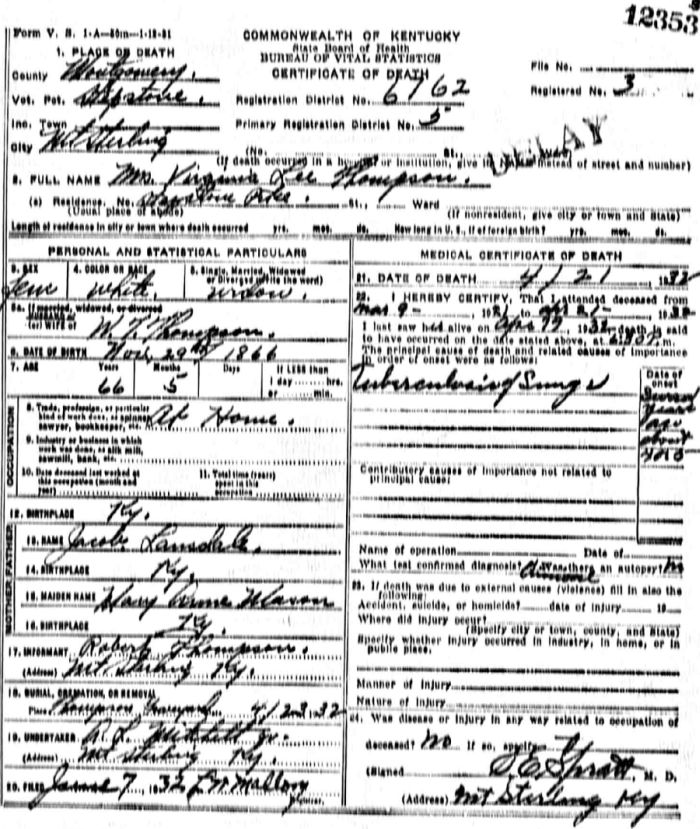 12353
Form V. S. 1-A—50m—1-12-31
COMMONWEALTH OF KENTUCKY
State Board of Health
BUREAU OF VITAL STATISTICS
CERTIFICATE OF DEATH
1. PLACE OF DEATH
County Montgomery.
Vot. Pct. Stepstone.
Inc. Town
City Mt Sterling
File No.
Registered No. 3
Registration District No. 6162
Primary Registration District No. 5
(No. St.,
DELAY
(If death occurred in a hospital or institution, give its NAME instead of street and number)
2. FULL NAME Mrs. Virginia Lee Thompson.
(a) Residence. No. Stepstone Pike. St., Ward
(Usual place of abode) (If nonresident, give city or town and State)
Length of residence in city or town where death occurred yrs. mos. ds. How long in U. S., if of foreign birth? yrs. mos. ds.
PERSONAL AND STATISTICAL PARTICULARS
3. SEX
Fem
4. COLOR OR RACE
white
5. Single, Married, Widowed
or Divorced (write the word)
widow.
5a. If married, widowed, or divorced
HUSBAND of
(or) WIFE of W. T. Thompson.
6. DATE OF BIRTH Nov. 29th 1866
7. AGE Years Months Days If LESS than
1 day hrs.
or min.
66 5
OCCUPATION
8. Trade, profession, or particular
kind of work done, as spinner,
sawyer, bookkeeper, etc. At Home.
9. Industry or business in which
work was done, as silk mill,
sawmill, bank, etc.
10. Date deceased last worked at
this occupation (month and
year)
11. Total time (years)
spent in this
occupation
12. BIRTHPLACE Ky.
FATHER
13. NAME Jacob Lansdale.
14. BIRTHPLACE Ky.
MOTHER
15. MAIDEN NAME Mary Anne Mason
16. BIRTHPLACE Ky.
17. INFORMANT Robert Thompson.
(Address) Mt Sterling Ky.
18. BURIAL, CREMATION, OR REMOVAL
Place Thompson Graveyard 4/23.32
19. UNDERTAKER Mitchell
(Address) Mt Sterling Ky.
20. FILED June 7, 1932 L. N. Mallory
MEDICAL CERTIFICATE OF DEATH
21. DATE OF DEATH 4/21 1932
22. I HEREBY CERTIFY, That I attended deceased from
Mar 9- 192 to Apr 21- 1932
I last saw her alive on Apr 1932 death is said
to have occurred on the date stated above, at m.
The principal cause of death and related causes of importance
in order of onset were as follows:
Tuberculosis of Lungs
Date of
onset
Several
years
ago
about
Contributory causes of importance not related to
principal cause:
Name of operation Date of
What test confirmed diagnosis? Was there an autopsy? no
23. If death was due to external causes (violence) fill in also the
following:
Accident, suicide, or homicide? date of injury 19
Where did injury occur?
(Specify city or town, county, and State)
Specify whether injury occurred in industry, in home, or in
public place.
Manner of injury
Nature of injury
24. Was disease or injury in any way related to occupation of
deceased? No If so, specify
(Signed) Spratt, M. D.
(Address) Mt Sterling Ky